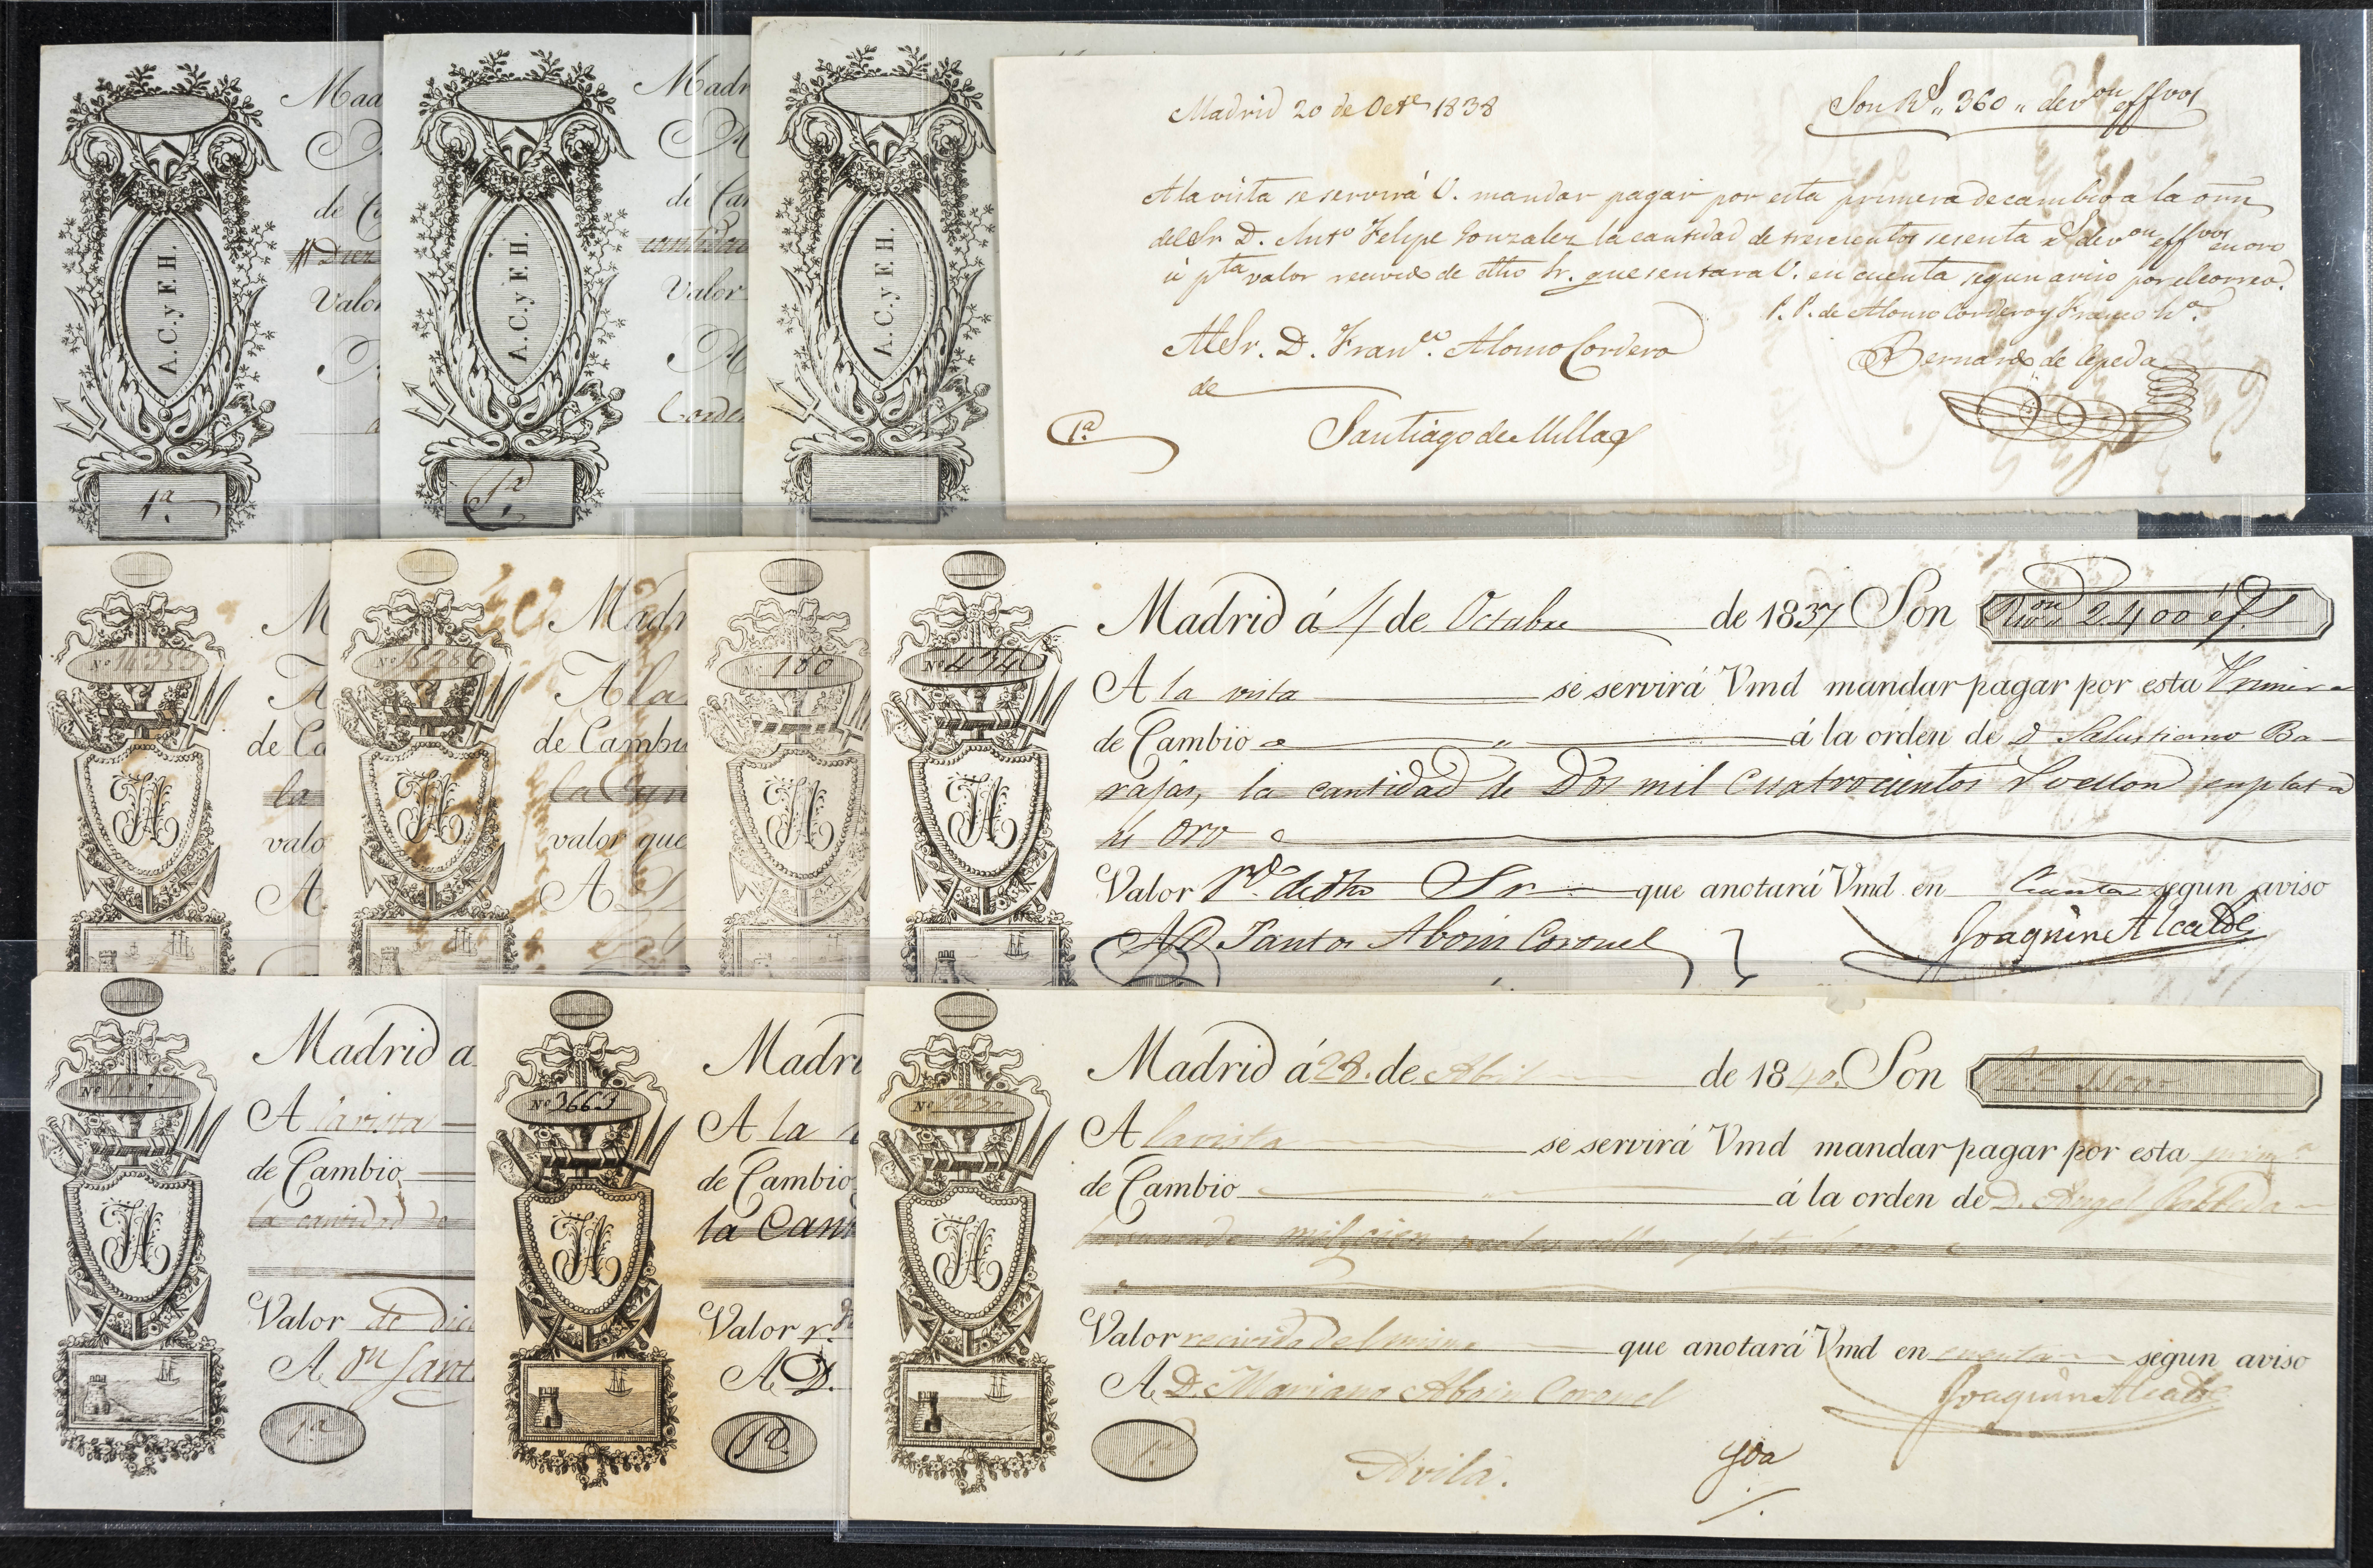 Mad
A.C.y F.H.
de C
Diez
Valor
1ª
Madr
A.C.y F.H.
de Cam
cantidad
Valor
Corde
1ª
A.C.y F.H.
Madrid 20 de Octe 1838
Son Rs „ 360 „ de von effvos
A la vista se servirá V. mandar pagar por esta primera de cambio a la orn
del Sr D. Anto Felipe Gonzalez la cantidad de trescientos sesenta rs de von effvos en oro
ú pta valor recivido de dho Sr. que sentara V. en cuenta segun aviso por el correo.
P. P. de Alonso Cordero y Franco hº
Al Sr. D. Franco. Alonso Cordero
Bernardo de Cepeda
de
1ª
Santiago de Millas
M
Nº 14253
A
de Ca
la
JA
valo
A
Madr
Nº 15284
A la
de Cambi
la Can
JA
valor que
A D
Nº 180
JA
Madrid á 4 de Octubre de 1837 Son Rvon 2400 ef.s
Nº 434
A la vista se servirá Vmd mandar pagar por esta Primera
de Cambio á la orden de D Salustiano Ba-
rajas, la cantidad de Dos mil Cuatrocientos rs vellon en plata
JA
ú oro
Valor rdo. de dho Sr que anotará Vmd en Cuenta segun aviso
A D Santos Aboin Coronel
Joaquin Alcalde
Madrid a
Nº
A la vista
de Cambio
la cantidad de
JA
Valor de dic
A Dn Sant
1ª
Madri
Nº 3663
A la v
de Cambio
la Cant
JA
Valor r.
A D.
1ª
Madrid á 28. de Abril de 1840. Son
Nº
A la vista se servirá Vmd mandar pagar por esta prim.ª
de Cambio á la orden de D. Angel
mil cien reales vellon plata ú oro
JA
Valor recivido del mismo que anotará Vmd en cuenta segun aviso
A D. Mariano Aboin Coronel
Joaquin Alcalde
1ª
Avila.